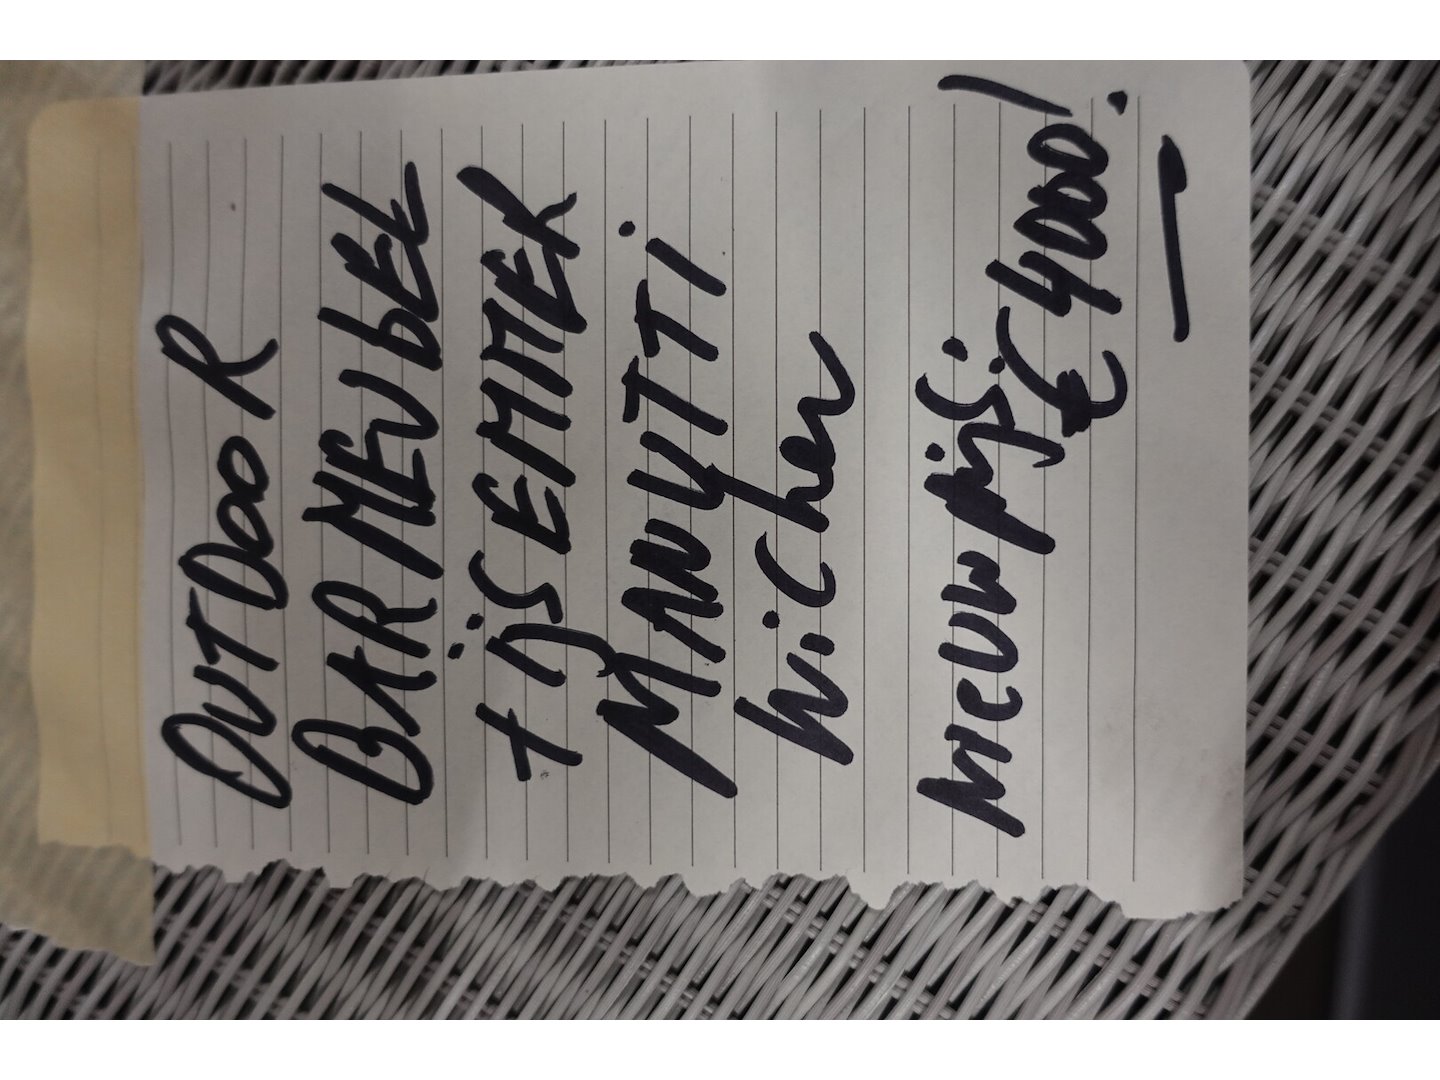 OUTDOOR
BARMEUBEL
+ IJSEMMER
MANUTTI
Wicker
NIEUWPRIJS:
€ 4000!